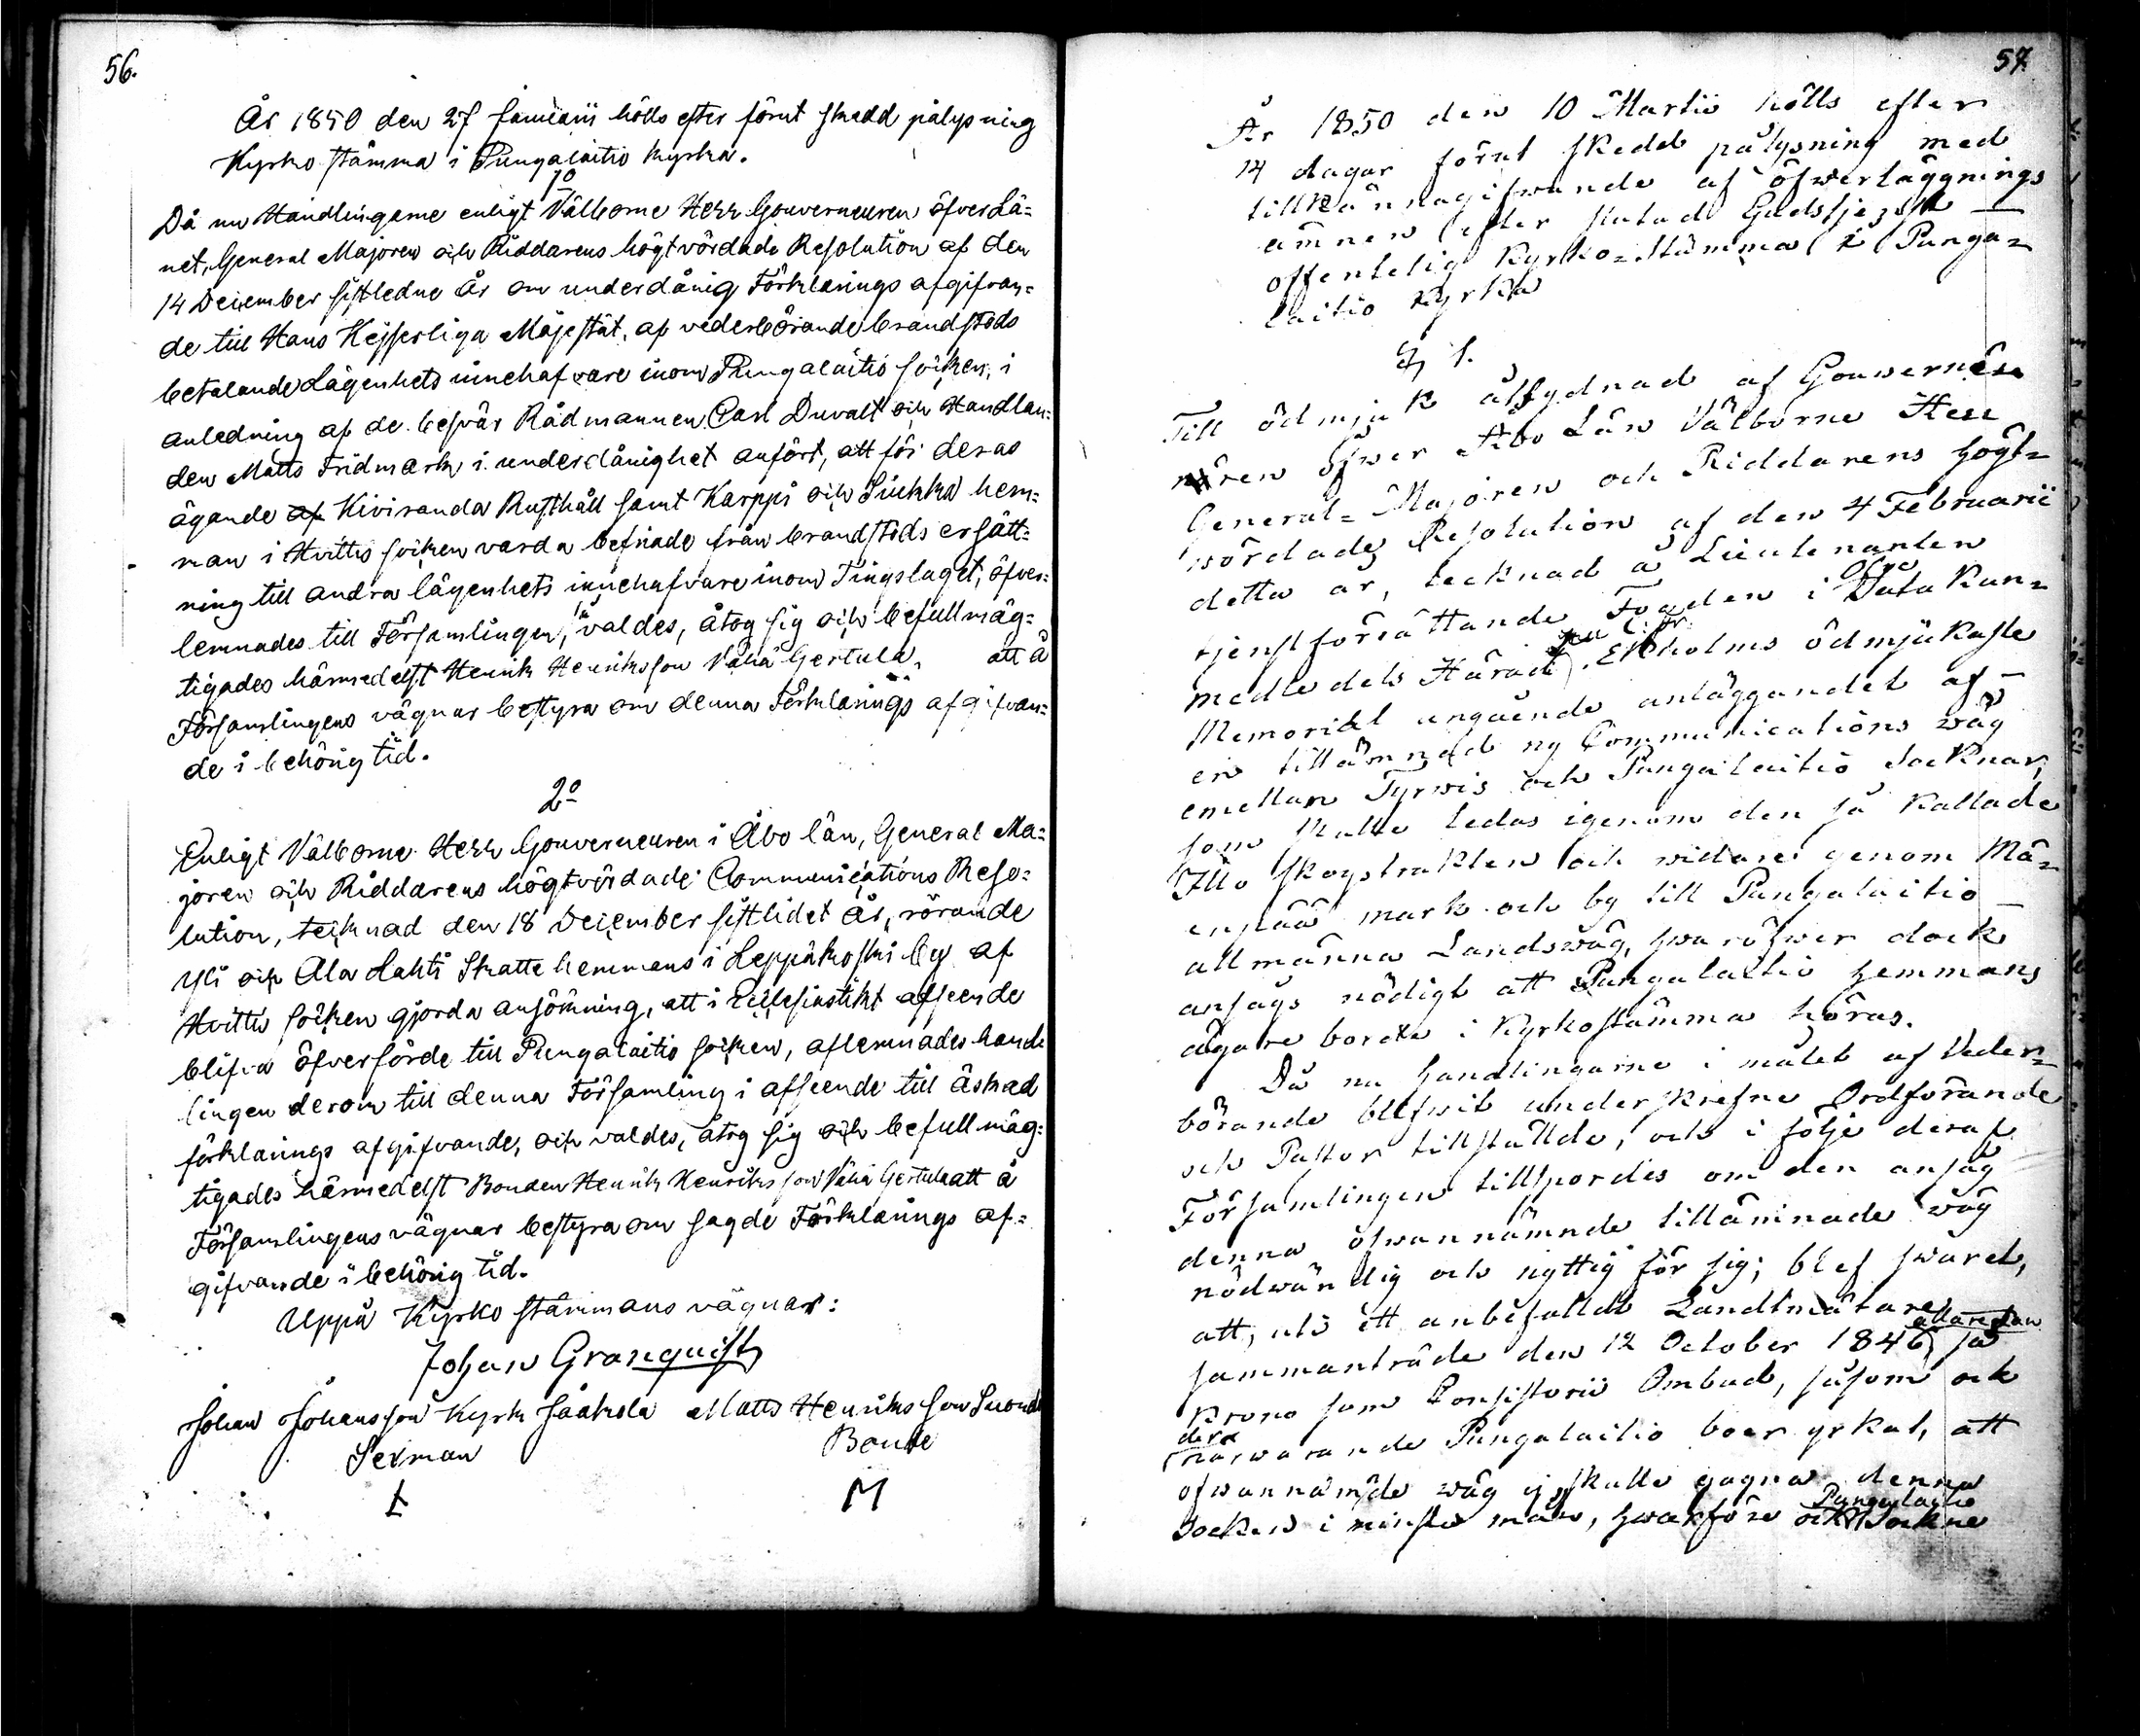 56.
År 1850 den 27 Januarii hölls efter förut skedd pålysning
Kyrkostämma i Pungalaitio kyrka.
1o
Då nu Handlingarne enligt Välborne Herr Gouverneuren öfver Lä=
net, General Majoren och Riddarens högtvördade Resolution af den
14 December sistledne År om underdånig Förklarings afgifvan=
de till Hans Kejserliga Majestät, af vederbörande brandstods
betalande Lägenhets innehafvare inom Pungalaitio socken, i
anledning af de besvär Rådmannen Carl Duvalt och Handlan=
den Matts Fridmark i underdånighet anfört, att för deras
ägande af Kiviranda Rusthåll samt Karppi och Siukka hem=
man i Hvittis socken varda befriade från brandstods ersätt=
ning till andra lägenhets innehafvare inom Tingslaget, öfver=
lemnades till Församlingen, så valdes, åtog sig och befullmäg=
tigades härmedelst Henrik Henriksson Vähä Gertula, att å
Församlingens vägnar bestyra om denna Förklarings afgifvan=
de i behörig tid.
2o
Enligt Välborne Herr Gouverneuren i Åbo län, General Ma=
joren och Riddarens högtvördade Communications Reso=
lution, tecknad den 18 December sistlidet År, rörande
Yli och Ala Lahti Skatte hemmans i Leppäkoski by af
Hvittis socken gjorda ansökning, att i Ecclesiastikt afseende
blifva öfverförde till Pungalaitio socken, aflemnades hand
lingen derom till denna Församling i afseende till äskad
förklarings afgifvande, och valdes, åtog sig och befullmäg=
tigades härmedelst Bonden Henrik Henriksson Vähä Gertula att å
Församlingens vägnar bestyra om sagde Förklarings af=
gifvande i behörig tid.
Uppå Kyrkostämmans vägnar:
Johan Granquist
Johan Johansson Kyrk Jaakola Matts Henriksson
Sexman Bonde
M
57.
År 1850 den 10 Martii hölls efter
14 dagar förut skedd pålysning med
tillkännagifwande af öfwerläggnings
ämnen efter slutad Gudstjenst
offentelig Kyrko=Stämma i Punga=
laitio Kyrka
§ 1.
Till ödmjuk åtlydnad af Gouverneu
ren öfwer Åbo Län Välborne Herr
General=Majoren och Riddarens högt=
wördade Resolution af den 4 Februarii
detta år, tecknad å Lieutenanten
tjenstförrättande Fogden i Öfre Satakun=
medledels Härad Ekholms ödmjukaste
Memorial angående anläggandet af
en tillämnad ny Communications wäg
emellan Tyrwis och Pungalaitio Socknar,
som skulle ledas igenom den så kallade
Illo skogstrakten och widare genom Mä=
enpää mark och by till Pungalaitio
allmänna Landswäg, hwaröfwer dock
ansågs nödigt att Pungalaitio hemmans
ägare borde i Kyrkostämma höras.
Då nu handlingarne i målet af Veder=
börande blifwit underskrefne Ordförande
och Pastor tillstälde, och i följe deraf
Församlingen tillspordes om den ansåg
denna ofwannämnde tillämnade wäg
nödwändig och nyttig för sig; blef swaret,
att, uti ett anbefalldt Landtmätare
sammanträde den 12 October 1846 allaredan så
Krono som Consistorii Ombud, såsom ock
dera närwarande Pungalaitio boer yrkat, att
ofwannämde wäg ej skulle gagna denna
Socken i minsta mån, hwarföre ock Pungalaitio Sockne